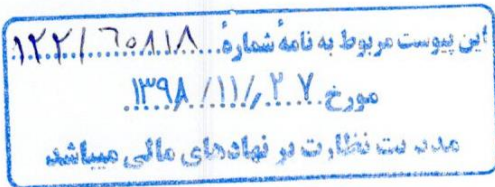 این پیوست مربوط به نامه شماره ۱۲۲/۶۰۸۱۸
مورخ ۱۳۹۸/۱۱/۲۷
مدیریت نظارت بر نهادهای مالی میباشد